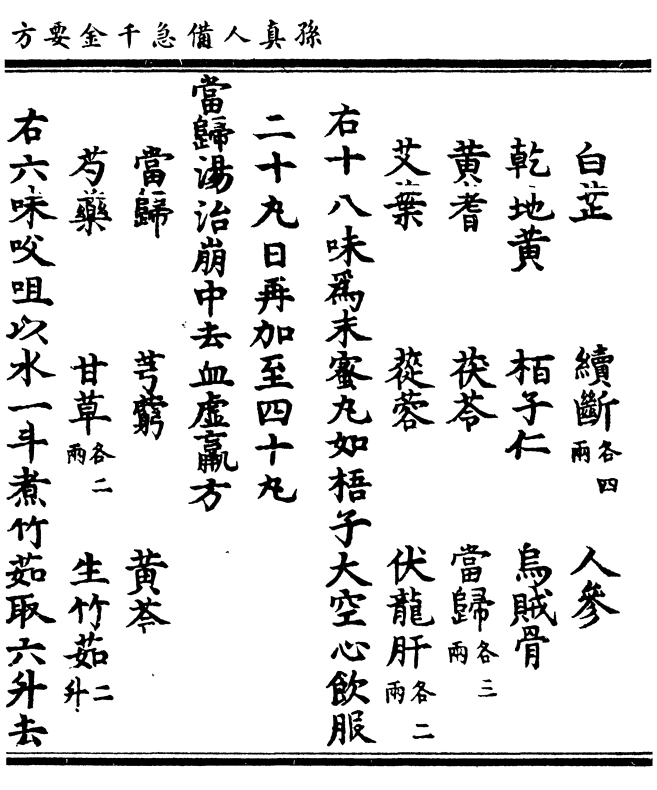 孫真人備急千金要方
白芷 續斷各四兩 人參
乾地黃 栢子仁 烏賊骨
黃耆 茯苓 當歸各三兩
艾葉 蓯蓉 伏龍肝各二兩
右十八味為末蜜丸如梧子大空心飲服
二十丸日再加至四十丸
當歸湯治崩中去血虛羸方
當歸 芎藭 黃芩
芍藥 甘草各二兩 生竹茹二升
右六味㕮咀以水一斗煮竹茹取六升去